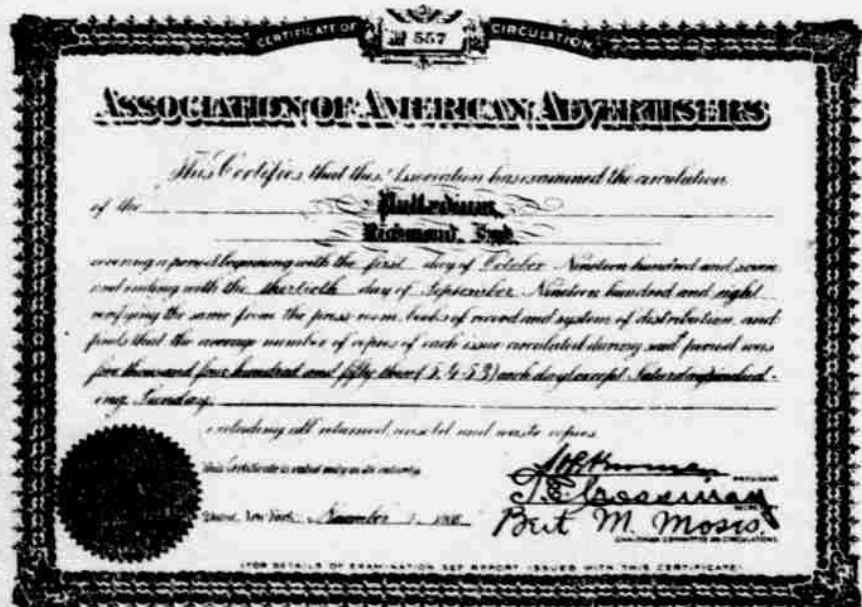 CERTIFICATE OF No 557 CIRCULATION
ASSOCIATION OF AMERICAN ADVERTISERS
This Certifies that this Association has examined the circulation
of the Palladium,
Richmond, Ind.
covering a period beginning with the first day of October Nineteen hundred and seven
and ending with the thirtieth day of September Nineteen hundred and eight
verifying the same from the press room, books of record and system of distribution, and
finds that the average number of copies of each issue circulated during said period was
five thousand four hundred and fifty three (5,453) each day except Saturday includ-
ing Sunday
excluding all returned, unsold, and waste copies
This Certificate is valid only in its entirety
New York, November 1908
PRESIDENT
Bert M. Moses
CHAIRMAN COMMITTEE ON CIRCULATIONS
(FOR DETAILS OF EXAMINATION SEE REPORT ISSUED WITH THIS CERTIFICATE)